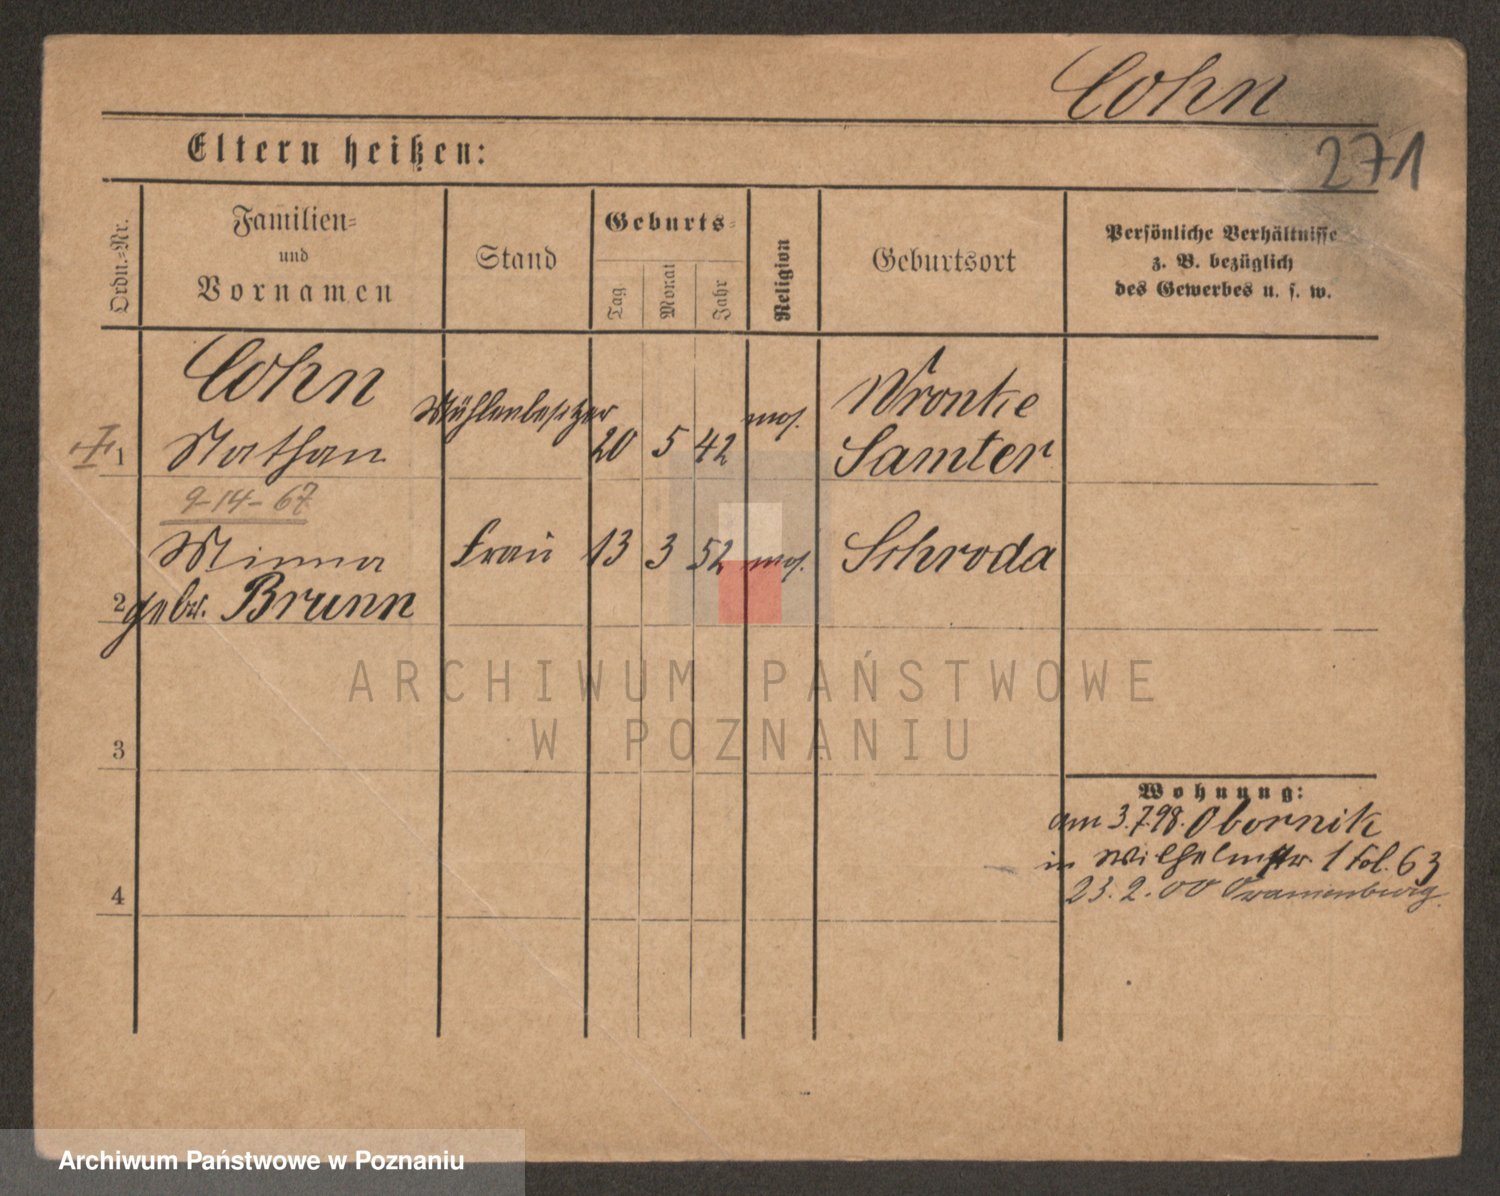 Cohn
271
Eltern heißen:
Ordn.=Nr.
Familien=
und
Vornamen
Stand
Geburts=
Tag
Monat
Jahr
Religion
Geburtsort
Persönliche Verhältnisse
z. B. bezüglich
des Gewerbes u. s. w.
Cohn
Mühlenbesitzer
mos.
Wronke
1
Nathan
20 5 42
Samter
9-14-67
Minna
Frau
13 3 52
mos.
Schroda
2
geb. Brunn
3
Wohnung:
am 3.7.98. Obornik
in Wilhelmstr. 1 Fol. 63
23.2.00 Oranienburg.
4
ARCHIWUM PAŃSTWOWE
W POZNANIU
Archiwum Państwowe w Poznaniu